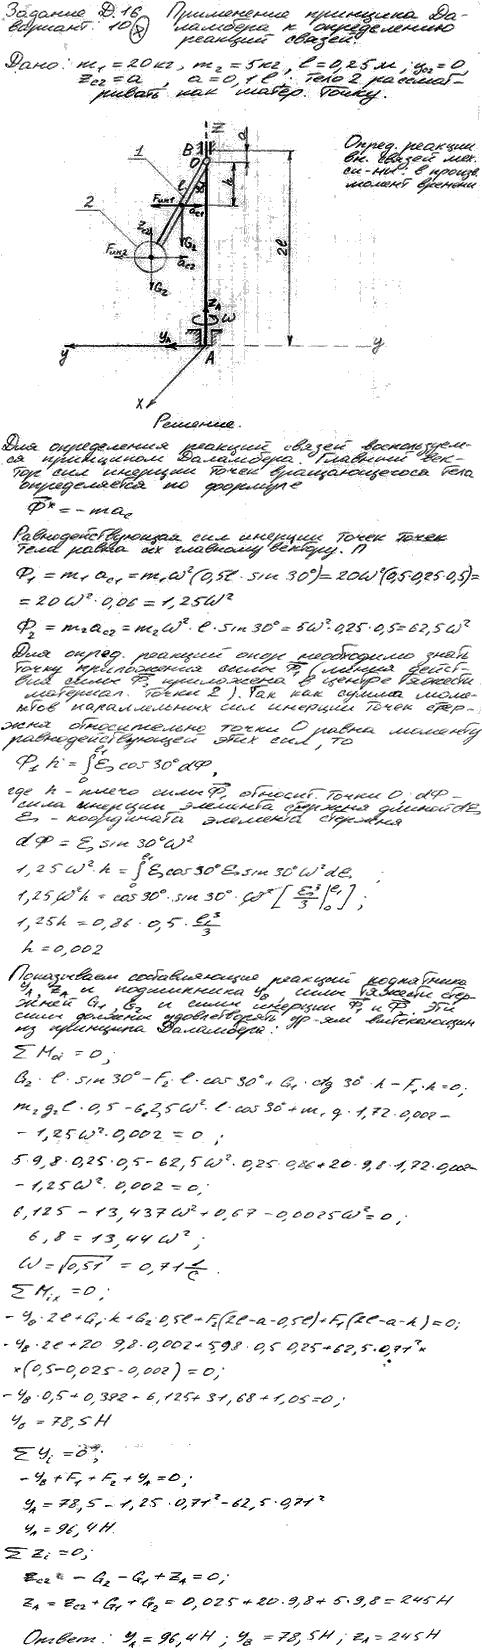 Задание Д.16 Применение принципа Да-
вариант: 10 ламбера к определению
реакций связей.
Дано: m₁=20кг, m₂=5кг, l=0,25м; yc₂=0,
zc₂=a, a=0,1l; тело 2 рассмат-
ривать как матер. точку.
Опред. реакции
вн. связей мех.
си-мы: в произв.
момент времени
1
B
Z
a
O
l
30
h
2
Fин1
ac1
zc2
G2
Fин2
ac2
G2
2l
zA
ω
yA
y
A
y
X
Решение.
Для определения реакций связей воспользуем-
ся принципом Даламбера. Главный век-
тор сил инерции точек вращающегося тела
определяется по формуле
Ф̄* = -mac
Равнодействующая сил инерции точек точек
тела равна их главному вектору. П
Ф₁ = m₁ ac₁ = m₁ω²(0,5l·sin 30°)= 20ω²(0,5·0,25·0,5)=
= 20ω²·0,06 = 1,25ω²
Ф₂ = m₂ac₂ = m₂ω²·l·sin 30° = 5ω²·0,25·0,5=62,5ω²
Для опред. реакций опор необходимо знать
точку приложения силы Ф̄₁ (линия дейст-
вия силы Ф̄₂ приложена в центре тяжести
материал. точки 2). Так как сумма моме-
нтов параллельных сил инерции точек стер-
жня относительно точки O равна моменту
равнодействующей этих сил, то
Ф₁ h = ∫ ξ cos 30° dФ,
где h - плечо силы Ф̄₁ относит. точки O; dФ -
сила инерции элемента стержня длиной dξ,
ξ - координата элемента стержня
dФ = ξ sin 30°ω²
1,25ω²·h = ∫ ξ cos 30° ξ sin 30° ω² dξ ;
1,25ω²h = cos 30°·sin 30°·ω² [ξ³/3 |] ;
1,25h = 0,86·0,5·l₁³/3
h = 0,002
Показываем составляющие реакций подпятника
yA, zA и подшипника yB, силы тяжести стер-
жней G₁, G₂ и силы инерции Ф̄₁ и Ф̄₂. Эти
силы должны удовлетворять ур-ям вытекающим
из принципа Даламбера:
∑ Moi = 0;
G₂·l·sin 30° - F₂·l·cos 30° + G₁·ctg 30°·h - F₁·h = 0;
m₂g₂l·0,5 - 62,5ω²·l·cos 30° + m₁g·1,72·0,002-
- 1,25ω²·0,002 = 0;
5·9,8·0,25·0,5 - 62,5ω²·0,25·0,86+20·9,8·1,72·0,002-
- 1,25ω²·0,002 = 0;
6,125 - 13,437ω² + 0,67 - 0,0025ω² = 0;
6,8 = 13,44ω²;
ω = √0,51 = 0,71 1/с.
∑ Mix = 0;
- yB·2l + G₁·h + G₂·0,5l + F₂(2l-a-0,5l) + F₁(2l-a-h) = 0;
- yB·2l + 20·9,8·0,002+5·9,8·0,5·0,25+62,5·0,71²×
×(0,5-0,025-0,002) = 0;
- yB·0,5 + 0,392 + 6,125 + 31,68 + 1,05 = 0;
yB = 78,5 Н
∑ yi = 0;
- yB + F₁ + F₂ + yA = 0;
yA = 78,5 - 1,25·0,71² - 62,5·0,71²
yA = 96,4 Н.
∑ zi = 0;
zc2 - G₂ - G₁ + zA = 0;
zA = zc2 + G₁ + G₂ = 0,025 + 20·9,8 + 5·9,8 = 245 Н
Ответ: yA = 96,4 Н; yB = 78,5 Н; zA = 245 Н